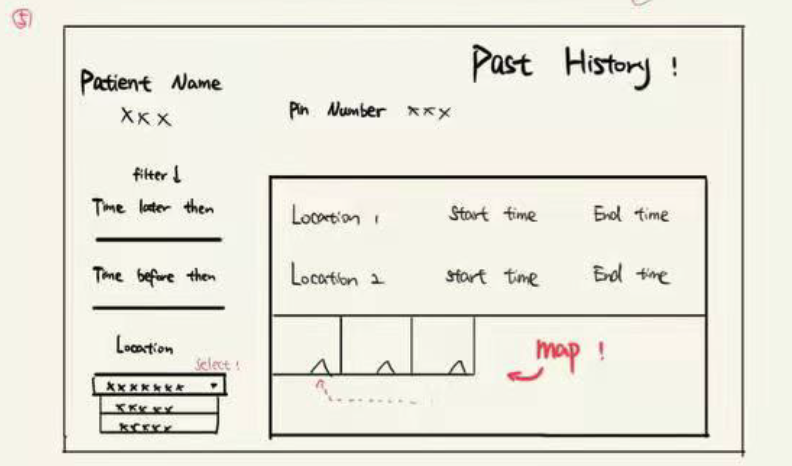 ⑤
Past History !
Patient Name
xxx
Pin Number xxx
filter ↓
Time later then
Time before then
Location
Select !
xxxxxxx
xxxxx
xxxxx
Location 1 Start time End time
Location 2 start time End time
map !